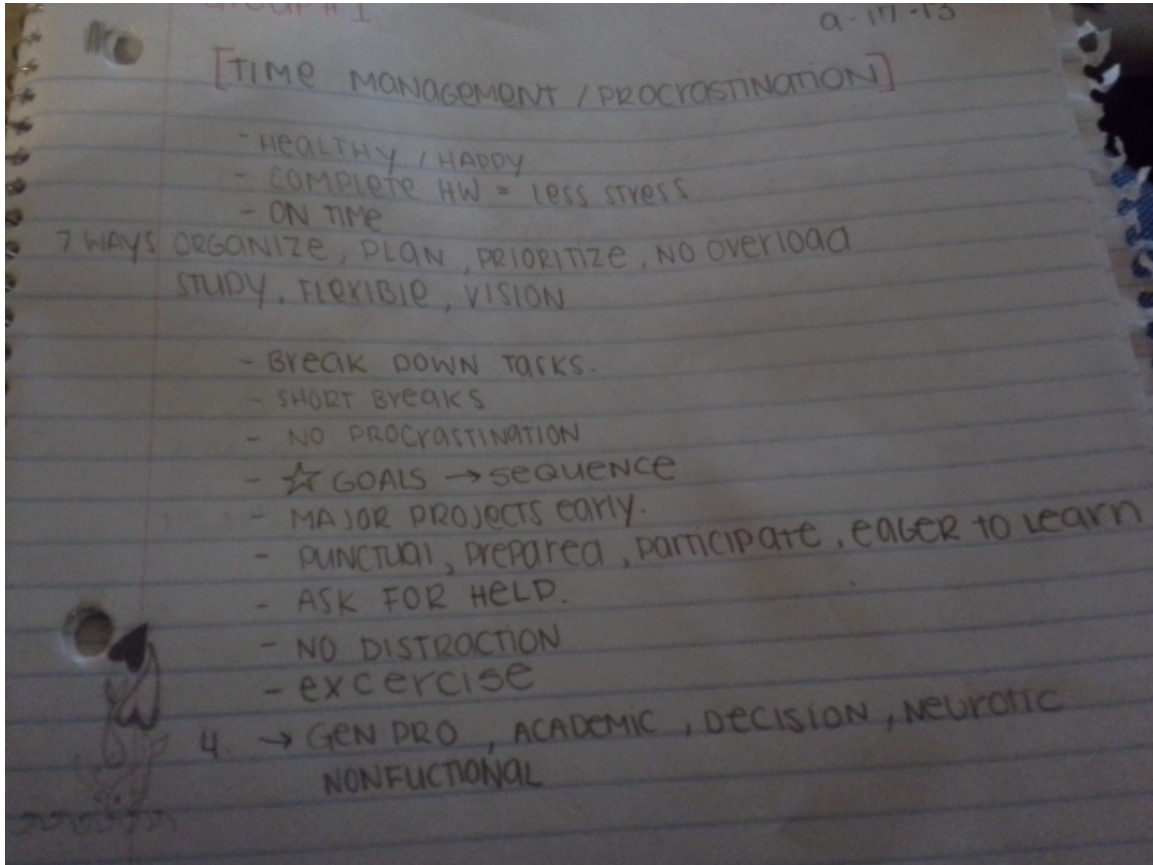 Group #1
9-17-13
[TIME MANAGEMENT / PROCRASTINATION]
- HEALTHY / HAPPY
- COMPLETE HW = LESS STRESS
- ON TIME
7 WAYS ORGANIZE, PLAN, PRIORITIZE, NO OVERLOAD
STUDY, FLEXIBLE, VISION
- BREAK DOWN TASKS.
- SHORT BREAKS
- NO PROCRASTINATION
- ☆ GOALS → SEQUENCE
- MAJOR PROJECTS EARLY.
- PUNCTUAL, PREPARED, PARTICIPATE, EAGER TO LEARN
- ASK FOR HELP.
- NO DISTRACTION
- EXCERCISE
4. → GEN PRO, ACADEMIC, DECISION, NEUROTIC
NONFUCTIONAL